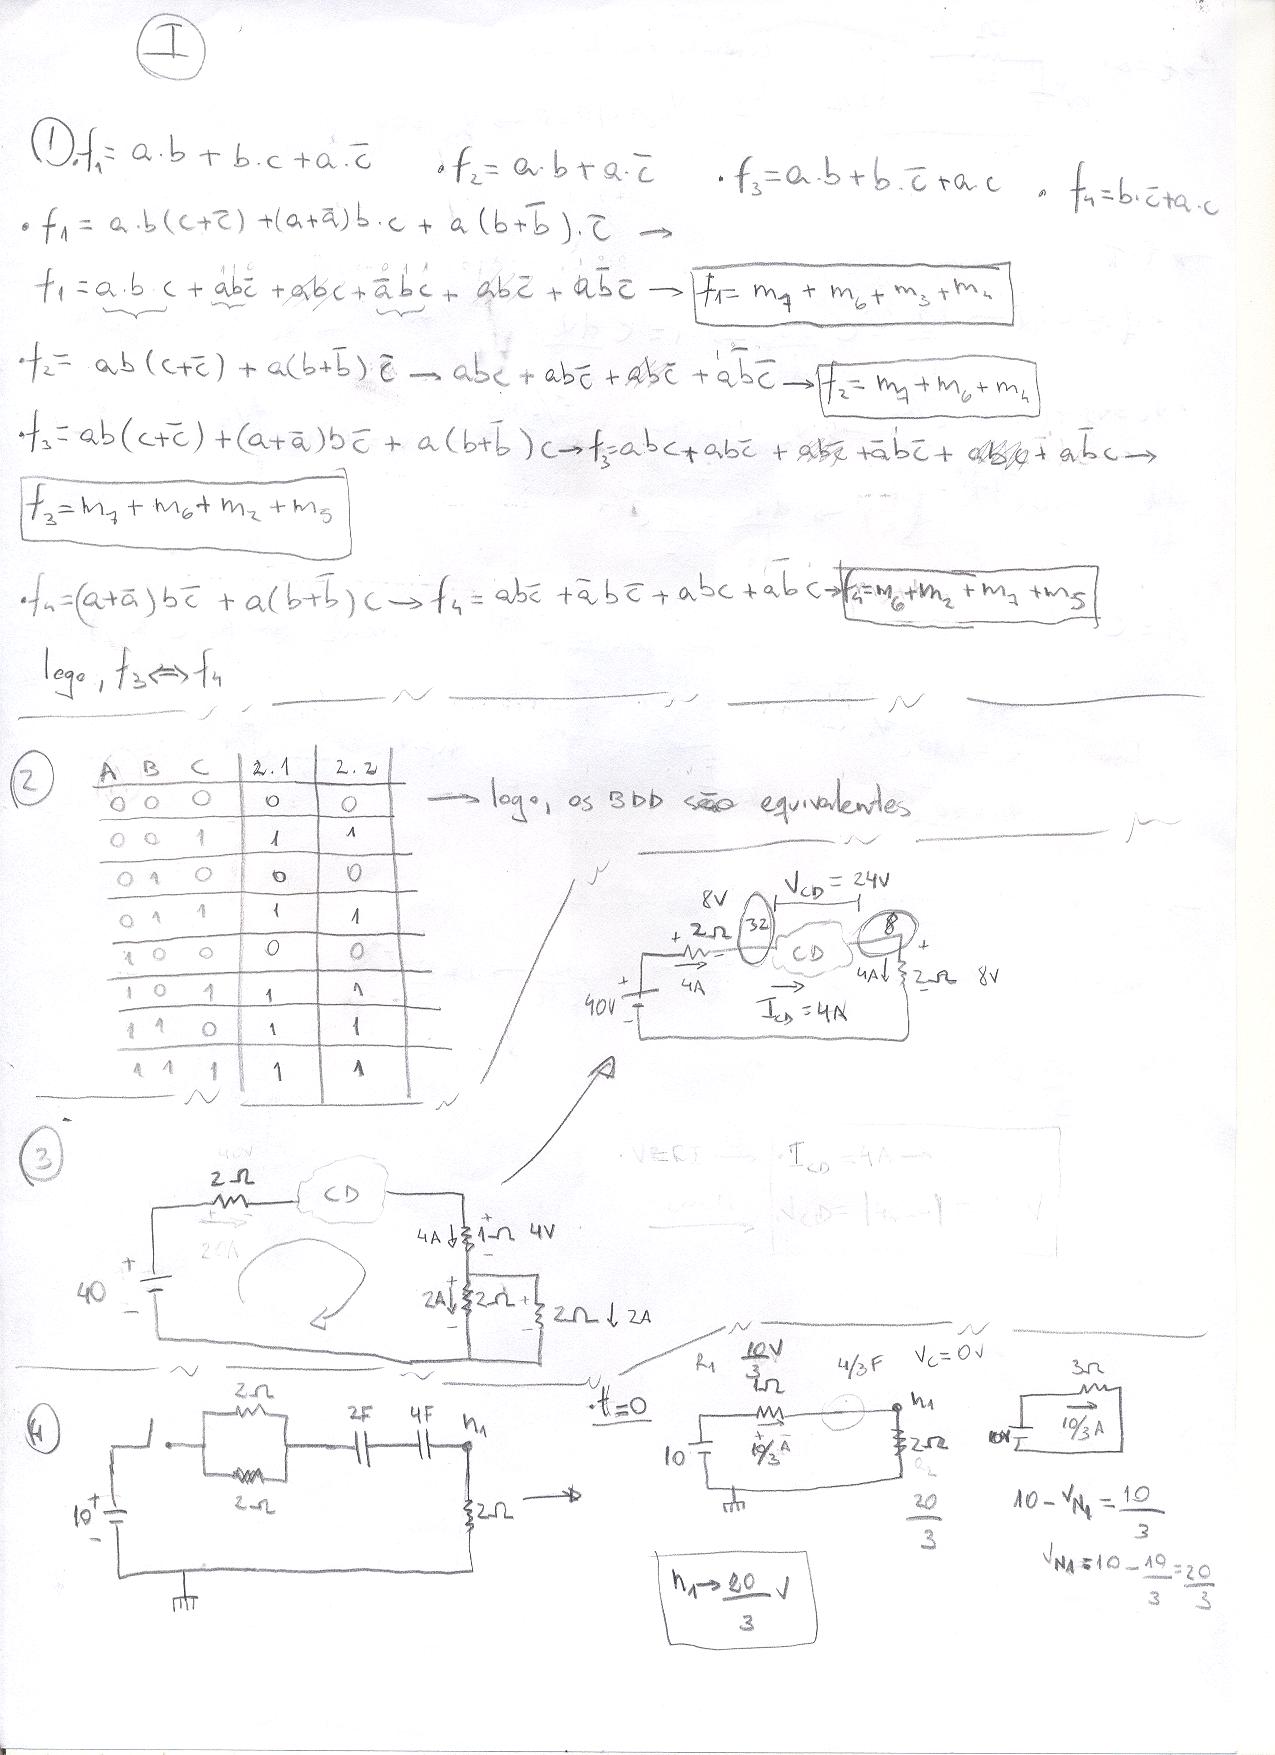 I
① f₁ = a·b + b·c + a·c̄   • f₂ = a·b + a·c̄   • f₃ = a·b + b·c̄ + a·c   • f₄ = b·c̄ + a·c
• f₁ = a·b(c+c̄) + (a+ā)b·c + a(b+b̄)·c̄ →
f₁ = a·b·c + abc̄ + abc + ābc + abc̄ + ab̄c̄ → f₁ = m₇ + m₆ + m₃ + m₄
• f₂ = ab(c+c̄) + a(b+b̄)c̄ → abc + abc̄ + abc̄ + ab̄c̄ → f₂ = m₇ + m₆ + m₄
• f₃ = ab(c+c̄) + (a+ā)bc̄ + a(b+b̄)c → f₃ = abc + abc̄ + abc̄ + ābc̄ + abc + ab̄c →
f₃ = m₇ + m₆ + m₂ + m₅
• f₄ = (a+ā)bc̄ + a(b+b̄)c → f₄ = abc̄ + ābc̄ + abc + ab̄c → f₄ = m₆ + m₂ + m₇ + m₅
logo, f₃ ⇔ f₄
②
A B C 2.1 2.2
0 0 0 0 0 → logo, os BDD são equivalentes
0 0 1 1 1
0 1 0 0 0
0 1 1 1 1
1 0 0 0 0
1 0 1 1 1
1 1 0 1 1
1 1 1 1 1
8V V_CD = 24V
+ 2Ω - 32 CD 8 +
4A 4A↓ 2Ω 8V
40V + - I_CD = 4A
③
2Ω CD
4A↓ + 1Ω 4V -
40 + -
2A↓ + 2Ω - + 2Ω - ↓ 2A
I_CD = 4A
④
2Ω 2F 4F n₁
2Ω
10 + - 2Ω →
• t=0
R₁ 10V/3 4/3F V_C = 0V
1Ω n₁
10 10/3 A 2Ω
20/3
3Ω
10V 10/3 A
10 - V_N1 = 10/3
V_N1 = 10 - 10/3 = 20/3
n₁ → 20/3 V